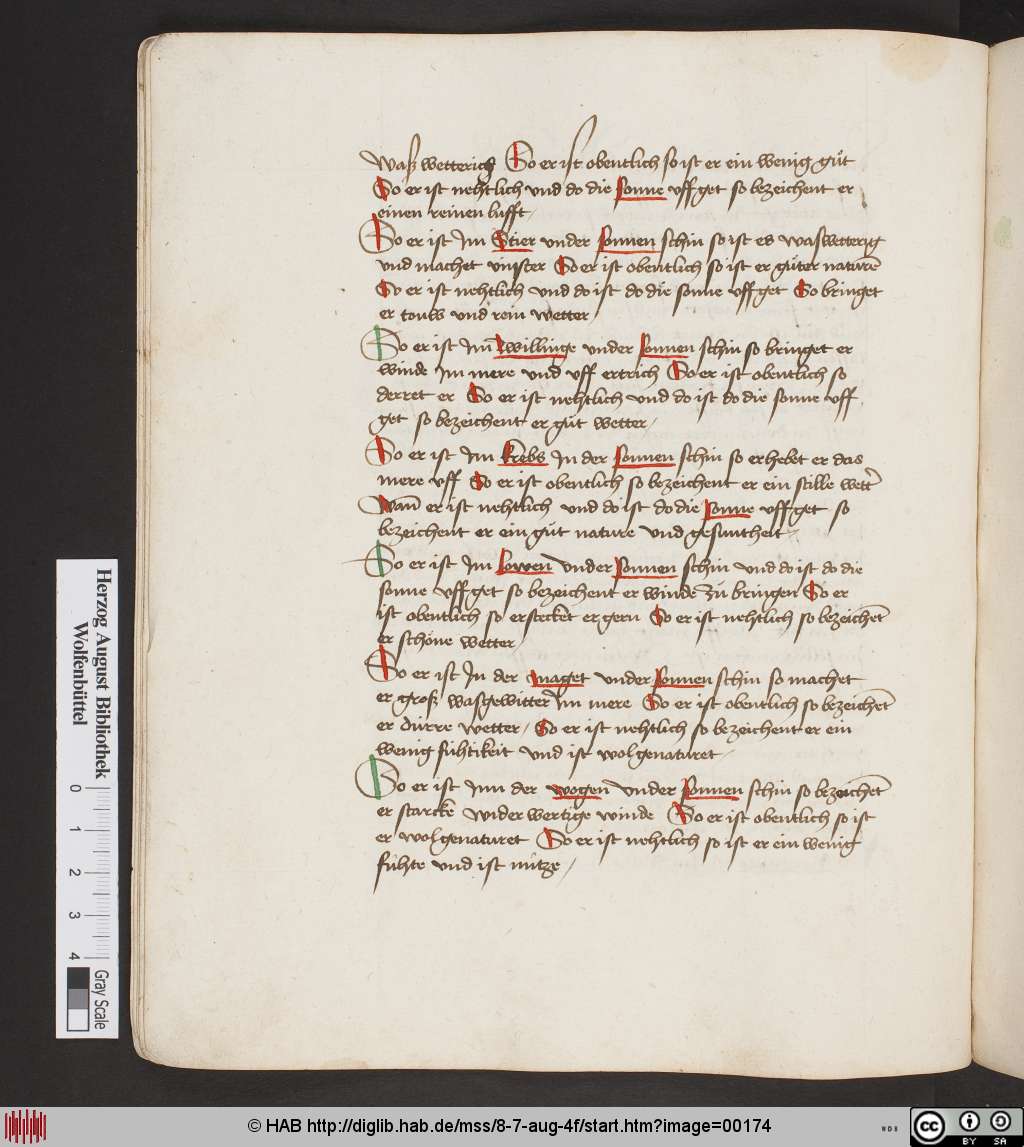 Waß wetterich So er ist obentlich so ist er ein wenig gůt
So er ist nehtlich vnd do die sonne vff get so bezeichent er
einen reinen lufft
So er ist Jm Stier vnder sonnen schin so ist es waswetterig
vnd machet vinster So er ist obentlich so ist er gůter naturē
So er ist nehtlich vnd do ist do die sonne vff get So bringet
er touw vnd rein wetter
So er ist Jm̄ zwillinge vnder sonnen schin so bringet er
winde Jm mere vnd vff ertrich So er ist obentlich so
derret er So er ist nehtlich vnd do ist do die sonne vff
get so bezeichent er gůt wetter
So er ist Jm krebs Jn der sonnen schin so erhebet er das
mere vff So er ist obentlich so bezeichent er ein stille wett'
Wan̄ er ist nehtlich vnd do ist do die sonne vff get so
bezeichent er ein gůt nature vnd gesuntheit
So er ist Jm lowen vnder sonnen schin vnd do ist do die
sonne vff get so bezeichent er winde zů bringen So er
ist obentlich so erstecket er gern So er ist nehtlich so bezeichēt
er schöne wetter
So er ist Jn der maget vnder sonnen schin so machet
er groß wasgewitter Jm mere So er ist obentlich so bezeichēt
er dürre wetter So er ist nehtlich so bezeichent er ein
wenig fühtikeit vnd ist wolgenaturet
So er ist Jnn der wogen vnder sonnen schin so bezeichēt
er starckē widerwertige winde So er ist obentlich so ist
er wolgenaturet So er ist nehtlich so ist er ein wenig
fühte vnd ist nütze
Herzog August Bibliothek
Wolfenbüttel
0 1 2 3 4
Gray Scale
© HAB http://diglib.hab.de/mss/8-7-aug-4f/start.htm?image=00174
WDB
cc BY SA